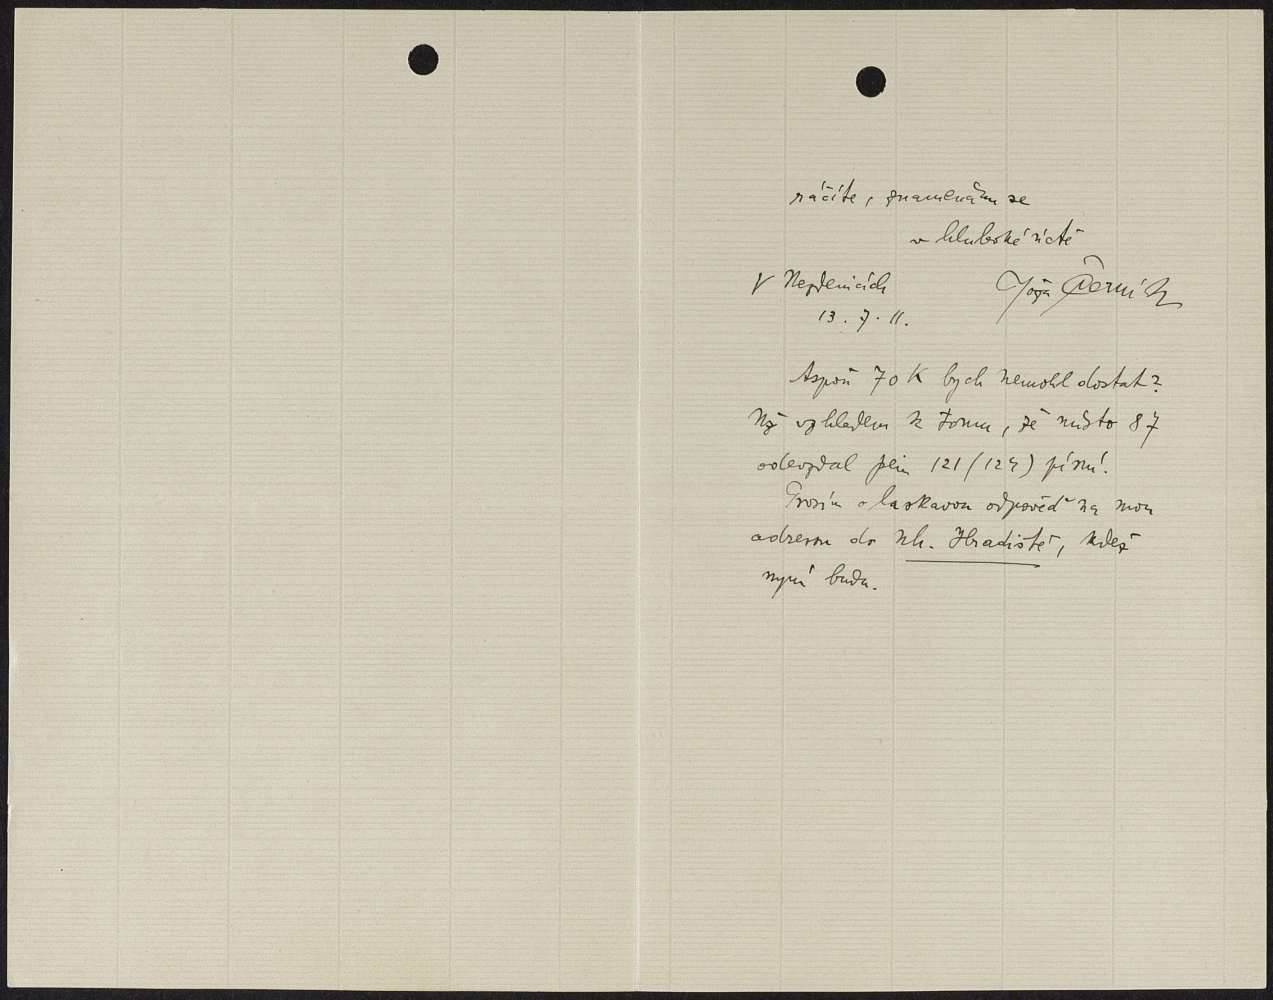 ráčíte, znamenám se
v hluboké úctě
V Nezdenicích Joža Černík
13. 7. 11.
Aspoň 70 K bych nemohl dostat?
vzhledem k tomu, že místo 87
odevzdal jsem 121 (124) písní.
Prosím o laskavou odpověď na mou
adresu do Uh. Hradiště, kdež
nyní budu.